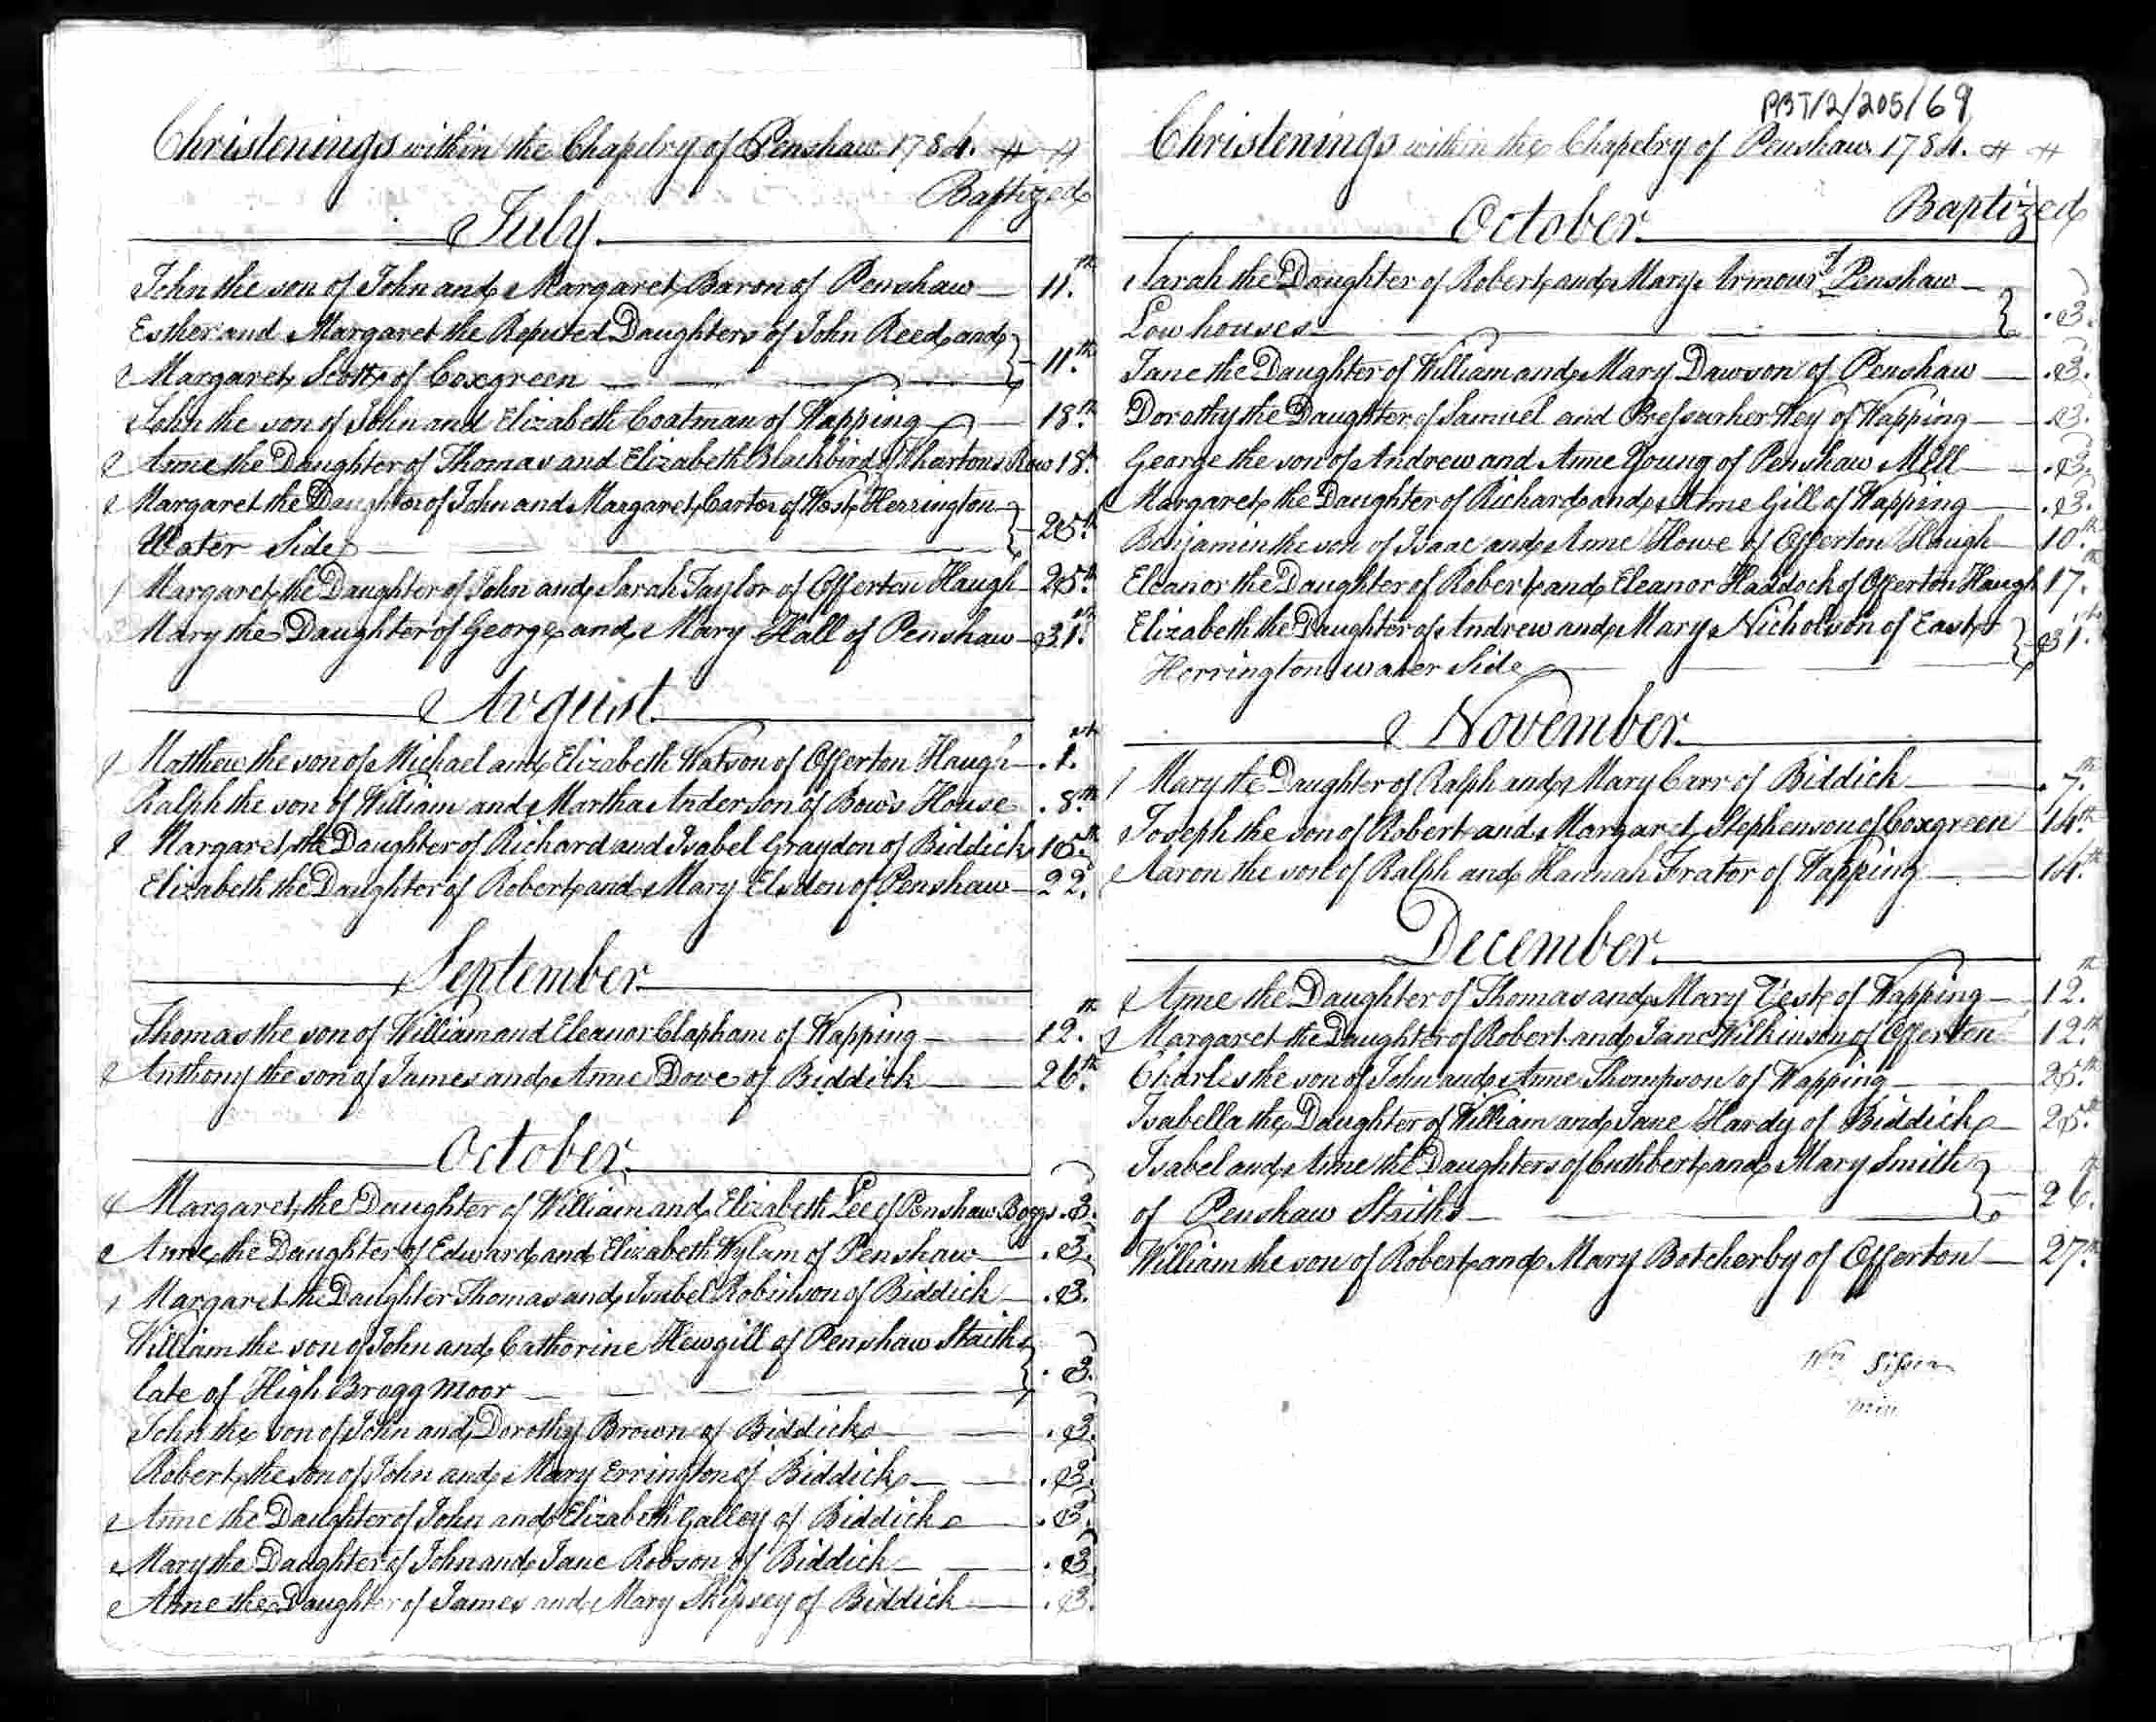 Christenings within the Chapelry of Penshaw 1784.
Baptized
July.
John the son of John and Margaret Baron of Penshaw 11.th
Esther and Margaret the Reputed Daughters of John Reed and
Margaret Scott of Coxgreen 11.th
John the son of John and Elizabeth Coatman of Wapping 18.th
Anne the Daughter of Thomas and Elizabeth Blackbird of Whartons Row 18.th
Margaret the Daughter of John and Margaret Carter of West Herrington
Water Side 25.th
Margaret the Daughter of John and Sarah Taylor of Offerton Haugh 25.th
Mary the Daughter of George and Mary Hall of Penshaw 31.st
August.
Matthew the son of Michael and Elizabeth Watson of Offerton Haugh .1.st
Ralph the son of William and Martha Anderson of Bow's House .8.th
Margaret the Daughter of Richard and Isabel Graydon of Biddick 15.th
Elizabeth the Daughter of Robert and Mary Elsdon of Penshaw 22.
September
Thomas the son of William and Eleanor Clapham of Wapping 12.th
Anthony the son of James and Anne Dove of Biddick 26.th
October.
Margaret the Daughter of William and Elizabeth Lee of Penshaw Boggs .3.
Anne the Daughter of Edward and Elizabeth Wylam of Penshaw .3.
Margaret the Daughter Thomas and Isabel Robinson of Biddick .3.
William the son of John and Catherine Hewgill of Penshaw Staiths
late of High Brogg moor .3.
John the son of John and Dorothy Brown of Biddick .3.
Robert the son of John and Mary Errington of Biddick .3.
Anne the Daughter of John and Elizabeth Galley of Biddick .3.
Mary the Daughter of John and Jane Robson of Biddick .3.
Anne the Daughter of James and Mary Skipsey of Biddick .3.
PBT/2/205/69
Christenings within the Chapelry of Penshaw 1784.
Baptized
October.
Sarah the Daughter of Robert and Mary Armour of Penshaw
Low houses .3.
Jane the Daughter of William and Mary Dawson of Penshaw .3.
Dorothy the Daughter of Samuel and Key of Wapping .3.
George the son of Andrew and Anne Young of Penshaw Mill .3.
Margaret the Daughter of Richard and Anne Gill of Wapping .3.
Benjamin the son of Isaac and Anne Howe of Offerton Haugh 10.th
Eleanor the Daughter of Robert and Eleanor Haddock of Offerton Haugh 17.th
Elizabeth the Daughter of Andrew and Mary Nicholson of East
Herrington water Side 31.st
November.
Mary the Daughter of Ralph and Mary Carr of Biddick .7.th
Joseph the son of Robert and Margaret Stephenson of Coxgreen 14.th
Aaron the son of Ralph and Hannah Frator of Wapping 14.th
December.
Anne the Daughter of Thomas and Mary Vest of Wapping 12.th
Margaret the Daughter of Robert and Jane Wilkinson of Offerton 12.th
Charles the son of John and Anne Thompson of Wapping 25.th
Isabella the Daughter of William and Jane Hardy of Biddick 25.th
Isabel and Anne the Daughters of Cuthbert and Mary Smith
of Penshaw Staiths 26.th
William the son of Robert and Mary Botcherby of Offerton 27.th
Wm Sisson
min